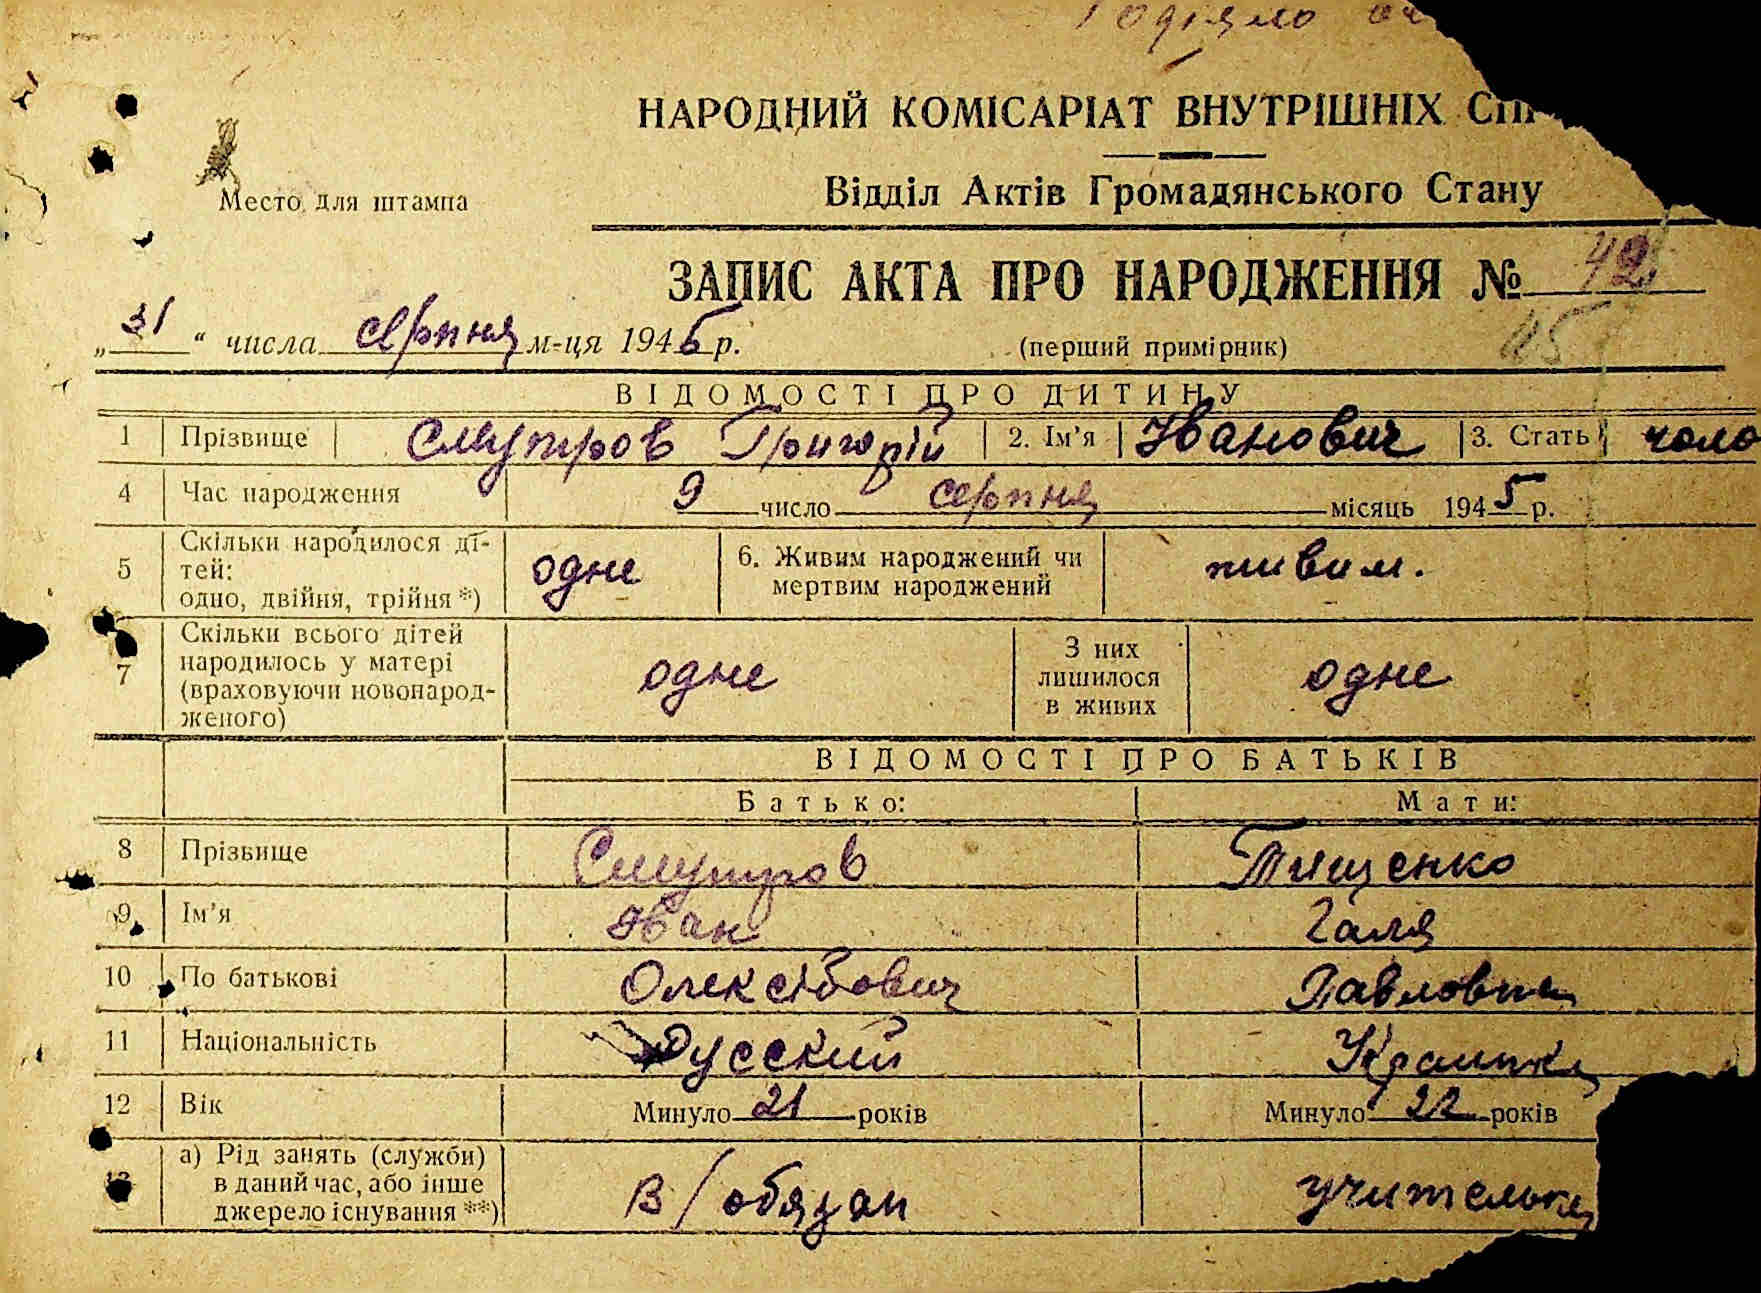 НАРОДНИЙ КОМІСАРІАТ ВНУТРІШНІХ
Место для штампа
Відділ Актів Громадянського Стану
ЗАПИС АКТА ПРО НАРОДЖЕННЯ № 42
„31“ числа серпня м-ця 1945 р.
(перший примірник) 45
ВІДОМОСТІ ПРО ДИТИНУ
1 Прізвище Смутров Григорій 2. Ім’я Іванович 3. Стать чоло
4 Час народження 9 число серпня місяць 1945 р.
5 Скільки народилося дітей: одно, двійня, трійня*) одне 6. Живим народжений чи мертвим народжений живим.
7 Скільки всього дітей народилось у матері (враховуючи новонародженого) одне З них лишилося в живих одне
ВІДОМОСТІ ПРО БАТЬКІВ
Батько: Мати:
8 Прізвище Смутров Тищенко
9 Ім’я Іван Галя
10 По батькові Олексієвич Павловна
11 Національність Русский Украинка
12 Вік Минуло 21 років Минуло 22 років
13 а) Рід занять (служби) в даний час, або інше джерело існування **) В/обязан учителька